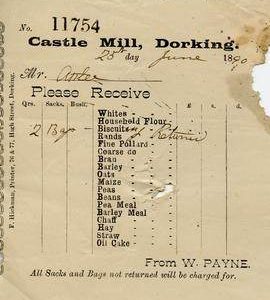 No. 11754
Castle Mill, Dorking.
25th day June 1890
Mr.
Please Receive
Qrs. Sacks. Bush.
Whites -
Household Flour -
2 Bags Biscuits
Rands
Fine Pollard -
Coarse do -
Bran -
Barley -
Oats -
Maize -
Peas -
Beans -
Pea Meal -
Barley Meal -
Chaff -
Hay -
Straw -
Oil Cake -
From W. PAYNE.
All Sacks and Bags not returned will be charged for.
F. Hickman, Printer, 76 & 77, High Street, Dorking.